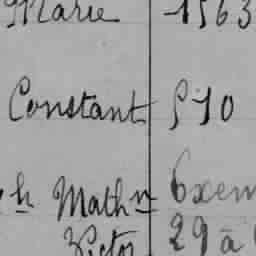 Marie 1563
Constant 510
h Math Exem
Victor 29 à